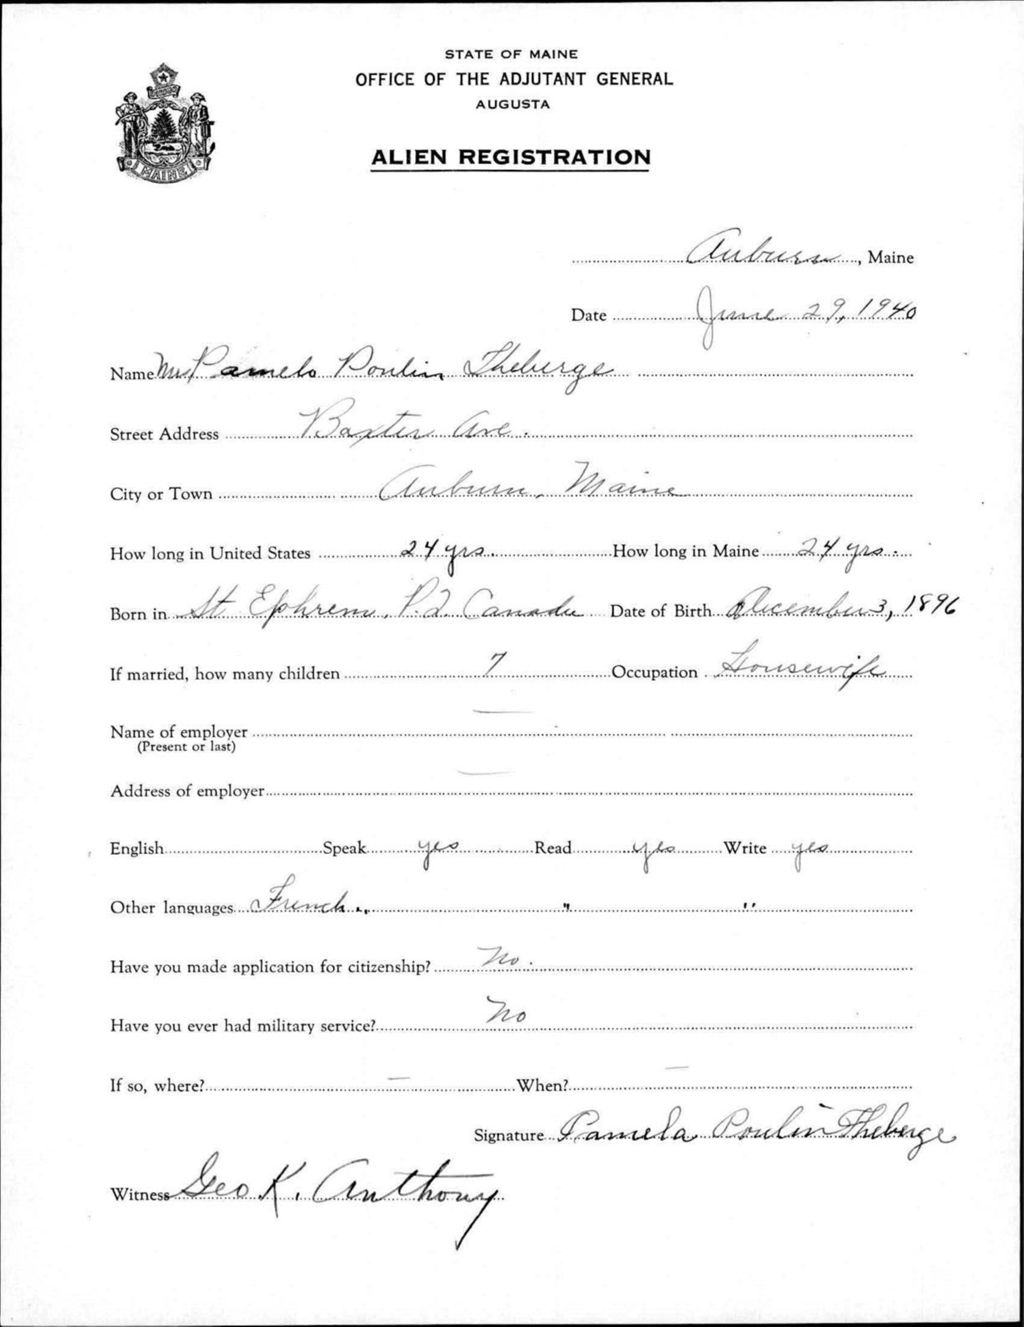 STATE OF MAINE
OFFICE OF THE ADJUTANT GENERAL
AUGUSTA
MAINE
ALIEN REGISTRATION
Auburn, Maine
Date June 29, 1940
Name Mrs Pamela Poulin Theberge
Street Address Baxter Ave.
City or Town Auburn, Maine
How long in United States 24 yrs. How long in Maine 24 yrs.
Born in St Ephrem, P.Q Canada Date of Birth December 3, 1896
If married, how many children 7 Occupation Housewife
Name of employer —
(Present or last)
Address of employer —
English Speak yes Read yes Write yes
Other languages French " " "
Have you made application for citizenship? No.
Have you ever had military service? No
If so, where? — When? —
Signature Pamela Poulin Theberge
Witness Geo K. Anthony